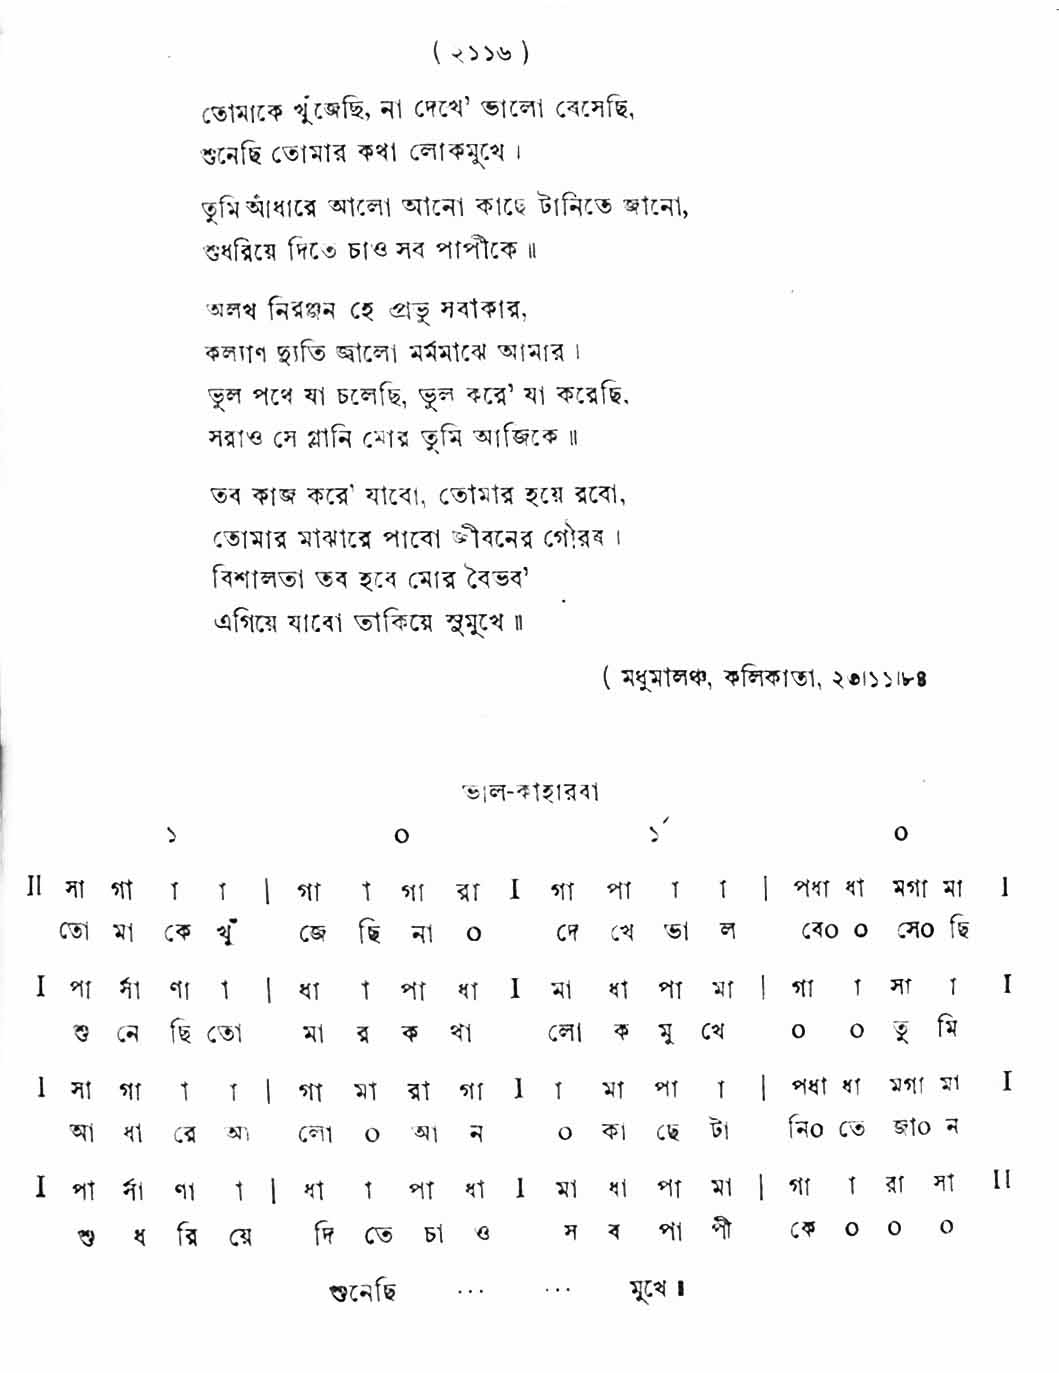 ( ২১১৬ )
তোমাকে খুঁজেছি, না দেখে' ভালো বেসেছি,
শুনেছি তোমার কথা লোকমুখে ।
তুমি আঁধারে আলো আনো কাছে টানিতে জানো,
শুধরিয়ে দিতে চাও সব পাপীকে ॥
অলখ নিরঞ্জন হে প্রভু সবাকার,
কল্যাণ দ্যুতি জ্বালো মর্মমাঝে আমার ।
ভুল পথে যা চলেছি, ভুল করে' যা করেছি,
সরাও সে গ্লানি মোর তুমি আজিকে ॥
তব কাজ করে' যাবো, তোমার হয়ে রবো,
তোমার মাঝারে পাবো জীবনের গৌরব ।
বিশালতা তব হবে মোর বৈভব'
এগিয়ে যাবো তাকিয়ে সুমুখে ॥
( মধুমালঞ্চ, কলিকাতা, ২৩।১১।৮৪
তাল-কাহারবা
১ ০ ১́ ০
II সা গা া া | গা া গা রা I গা পা া া | পধা ধা মগা মা I
তো মা কে খুঁ জে ছি না ০ দে খে ভা ল বে০ ০ সে০ ছি
I পা র্সা ণা া | ধা া পা ধা I মা ধা পা মা | গা া সা া I
শু নে ছি তো মা র ক থা লো ক মু খে ০ ০ তু মি
I সা গা া া | গা মা রা গা I া মা পা া | পধা ধা মগা মা I
আ ধা রে আ লো ০ আ ন ০ কা ছে টা নি০ তে জা০ ন
I পা র্সা ণা া | ধা া পা ধা I মা ধা পা মা | গা া রা সা II
শু ধ রি য়ে দি তে চা ও স ব পা পী কে ০ ০ ০
শুনেছি ... ... মুখে ।